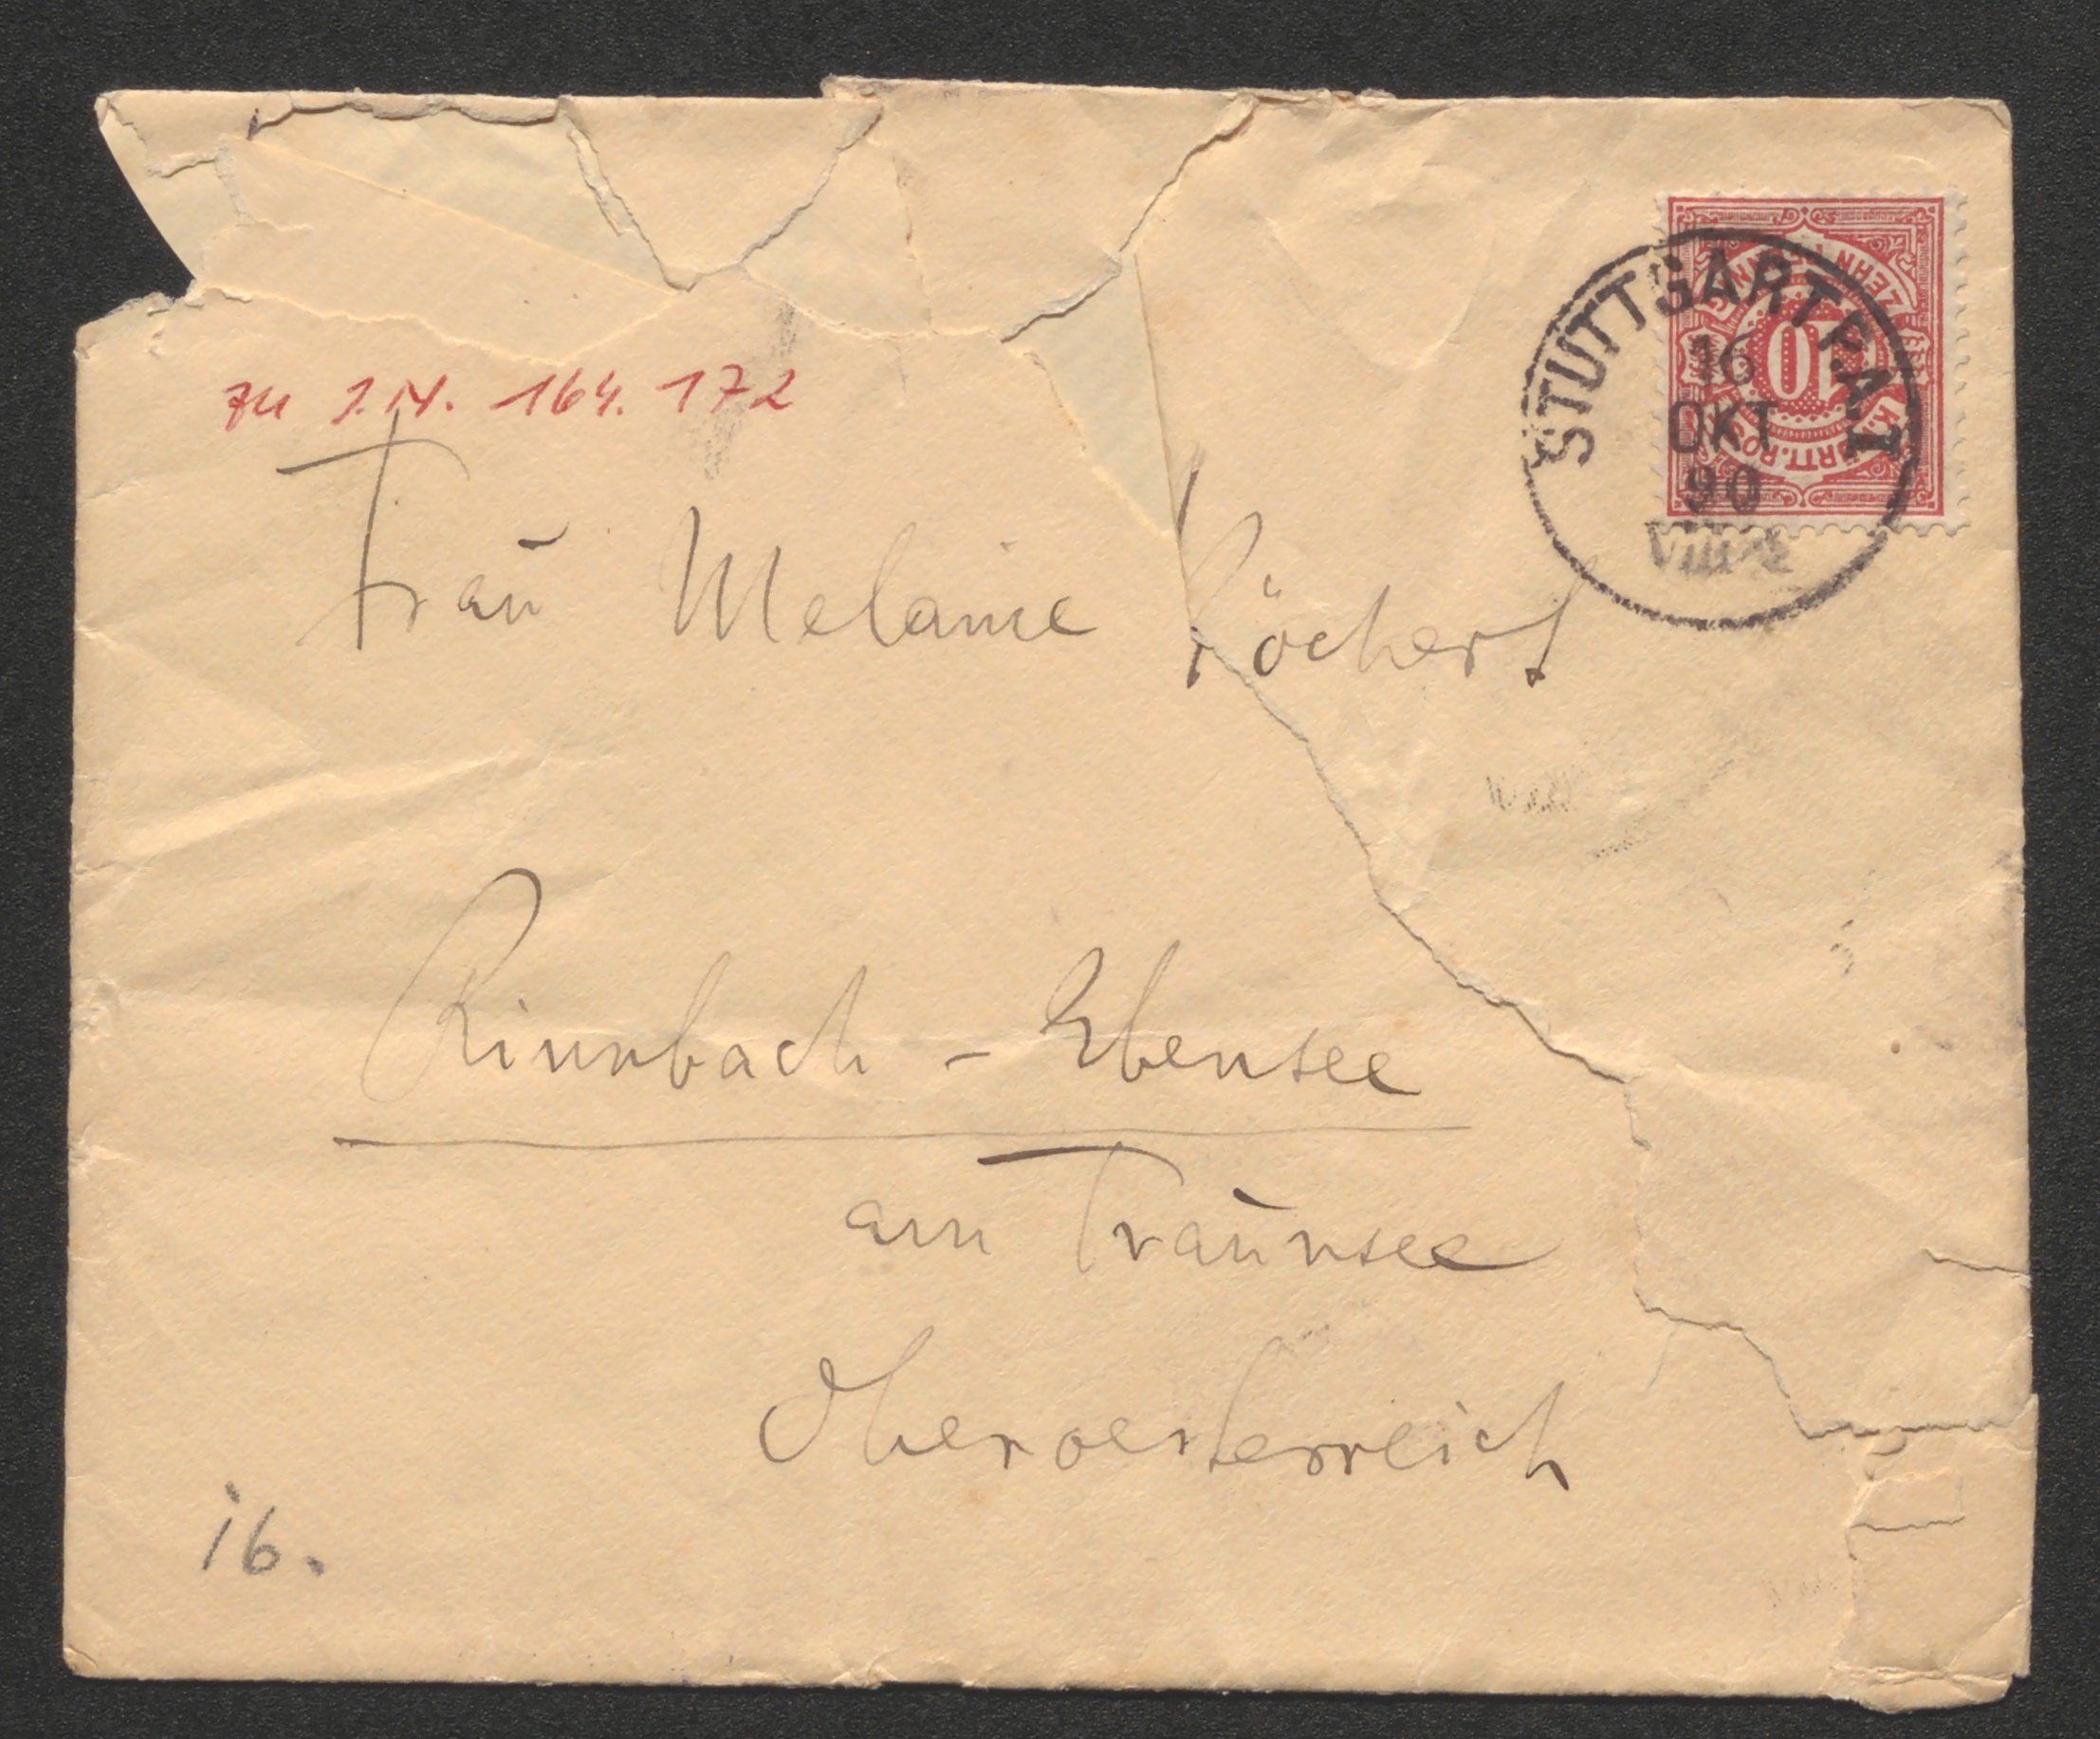 zu I.N. 164.172
STUTTGART P.A.I
16
OKT
90
ZEHN PFENNIG
10
K. WÜRTT. POST
Frau Melanie Köchert
Rinnbach - Ebensee
am Traunsee
Oberoesterreich
16.